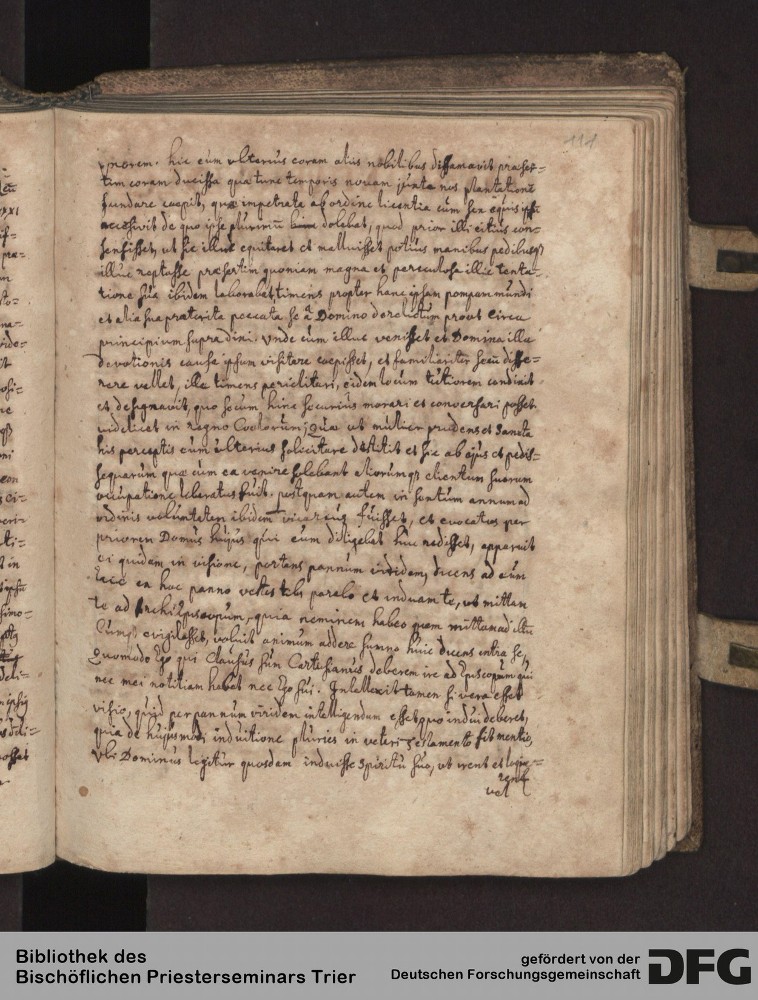 111
uxorem. hic eum ulterius coram aliis nobilibus diffamavit præser=
tim coram ducissa quæ tunc temporis novam juxta nos plantationē
fundare coepit, quæ impetrata ab ordine licentia cum sex equis ipsū
accersivit de quo ipse plurimū dolebat, quod prior illi citius con=
sensisset, ut sic illuc equitaret et maluisset potius manibus pedibusq̄
illuc reptasse præsertim quoniam magna et periculosa illic tenta=
tione sua ibidem laborabat, timens propter hanc ipsam pompam mundi
et alia sua præterita peccata se à Domino derelictum prout circa
principium supra dixi. Unde cum illuc venisset et Domina illa
devotionis causa ipsum visitare coepisset, et familiariter secū disse=
rere vellet, ille timens periclitari, eidem locum tutiorem condixit
et designavit, quo secum hinc securius morari et conversari posset.
videlicet in regno Coelorum; Quæ ut mulier prudens et sancta
his perceptis eum ulterius solicitare destitit et sic ab ejus et pedis=
sequarum quæ cum ea venire solebant aliorumq̄ clientum suorum
occupatione liberatus fuit. postquam autem in tantum annum ad
ordinis voluntatem ibidem vicarius fuisset, et evocatus per
priorem Domus hujus qui eum diligebat huc redisset, apparuit
ei quidam in visione, portans pannum viridem, dicens ad eum
ecce ex hoc panno vestes tibi parabo et induam te, ut mittam
te ad Archiepiscopum, quia neminem habeo quem mittam ad illū
Cumq̄ evigilasset, voluit animum addere somno huic dicens intra se,
Quomodo Ego qui Clausus sum Cartusianus deberem ire ad Episcopum qui
nec mei notitiam habet nec Ego sui. Intellexit tamen si vera esset
visio, quid per pannum viridem intelligendum esset, quo indui deberet,
quia de hujusmodi induitione pluries in veteri testamento fit mentio,
Ubi Dominus legitur quosdam induisse spiritu suo, ut irent et loque=
rent
vel
Bibliothek des
Bischöflichen Priesterseminars Trier
gefördert von der
Deutschen Forschungsgemeinschaft
DFG